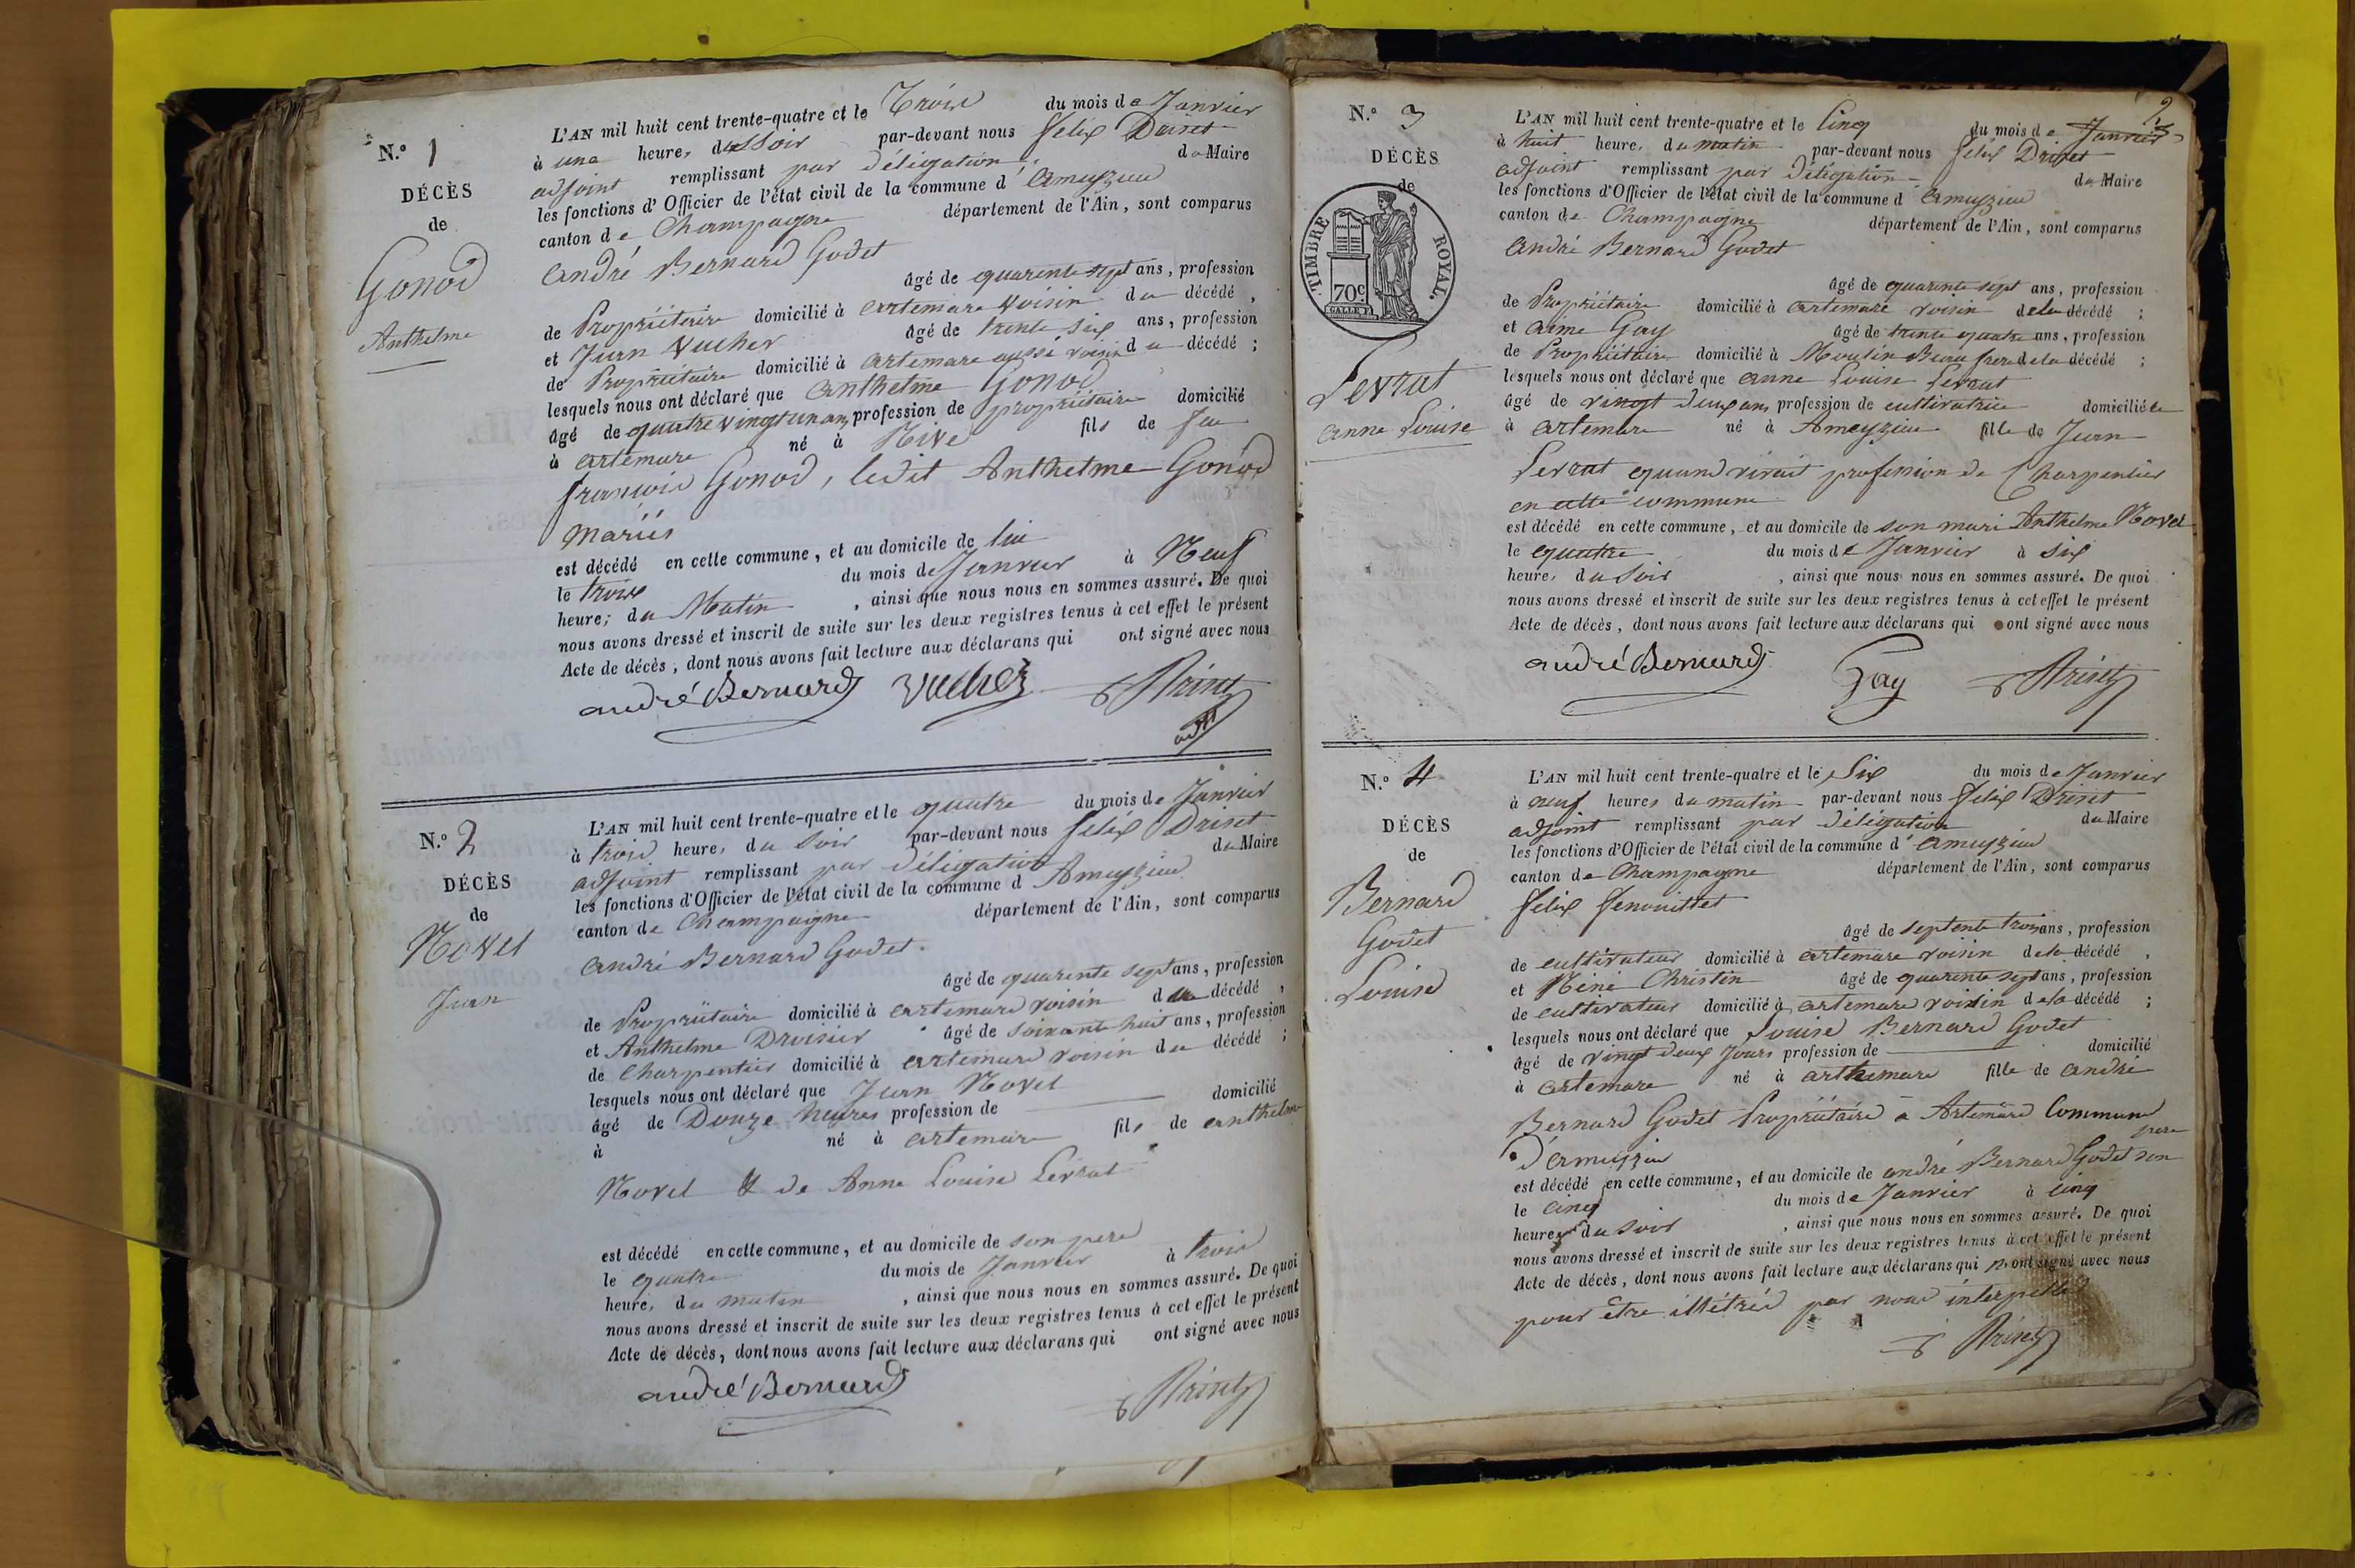 N.º 1
DÉCÈS
de
Gonod
Anthelme
L'AN mil huit cent trente-quatre et le Trois du mois de Janvier
à une heure, du Soir par-devant nous felix Drinet
adjoint remplissant par délégation du Maire
les fonctions d'Officier de l'état civil de la commune d' ameyzieu
canton de Champagne département de l'Ain, sont comparus
andré Bernard Godet
âgé de quarente sept ans, profession
de Propriétaire domicilié à artemare voisin du décédé,
et Jean Vucher âgé de trente six ans, profession
de Propriétaire domicilié à artemare aussi voisin du décédé;
lesquels nous ont déclaré que anthelme Gonod
âgé de quatre vingt un ans, profession de propriétaire domicilié
à artemare né à fils de feu
françois Gonod, ledit Anthelme Gonod
mariés
est décédé en cette commune, et au domicile de lui
le trois du mois de Janvier à Neuf
heure; du Matin, ainsi que nous nous en sommes assuré. De quoi
nous avons dressé et inscrit de suite sur les deux registres tenus à cet effet le présent
Acte de décès, dont nous avons fait lecture aux déclarans qui ont signé avec nous
andré Bernard Vucher f Drinet
adjt
N.º 2
DÉCÈS
de
Novel
Jean
L'AN mil huit cent trente-quatre et le quatre du mois de Janvier
à trois heure, du Soir par-devant nous felix Drinet
adjoint remplissant par délégation du Maire
les fonctions d'Officier de l'état civil de la commune d Ameyzieu
canton de Champaigne département de l'Ain, sont comparus
andré Bernard Godet
âgé de quarente sept ans, profession
de Propriétaire domicilié à artemare voisin du décédé,
et Anthelme Droisier âgé de soixante huit ans, profession
de Charpentier domicilié à artemare voisin du décédé;
lesquels nous ont déclaré que Jean Novel
âgé de Douze heures profession de domicilié
à né à artemare fils de anthelme
Novel & de Anne Louise Levrat
est décédé en cette commune, et au domicile de son pere
le quatre du mois de Janvier à trois
heure, du matin, ainsi que nous nous en sommes assuré. De quoi
nous avons dressé et inscrit de suite sur les deux registres tenus à cet effet le présent
Acte de décès, dont nous avons fait lecture aux déclarans qui ont signé avec nous
andré Bernard f Drinet
2
N.º 3
DÉCÈS
de
TIMBRE ROYAL.
70c
Levrat
anne Louise
L'AN mil huit cent trente-quatre et le Cinq du mois de Janvier
à huit heure, du matin par-devant nous felix Drinet
adjoint remplissant par délégation du Maire
les fonctions d'Officier de l'état civil de la commune d' ameyzieu
canton de Champagne département de l'Ain, sont comparus
andré Bernard Godet
âgé de quarente sept ans, profession
de Propriétaire domicilié à artemare voisin de la décédé;
et aime Gay âgé de trente quatre ans, profession
de Propriétaire domicilié à Moulin Beau frere de la décédé;
lesquels nous ont déclaré que anne Louise Levrat
âgé de vingt deux ans, profession de cultivatrice domiciliée
à artemare né à Ameyzieu fille de Jean
Levrat quand vivait profession de Charpentier
en cette commune
est décédé en cette commune, et au domicile de son mari Anthelme Novel
le quatre du mois de Janvier à six
heure, du Soir, ainsi que nous nous en sommes assuré. De quoi
nous avons dressé et inscrit de suite sur les deux registres tenus à cet effet le présent
Acte de décès, dont nous avons fait lecture aux déclarans qui ont signé avec nous
andré Bernard Gay f Drinet
N.º 4
DÉCÈS
de
Bernard
Godet
Louise
L'AN mil huit cent trente-quatre et le Six du mois de Janvier
à neuf heures du matin par-devant nous felix Drinet
adjoint remplissant par délégation du Maire
les fonctions d'Officier de l'état civil de la commune d' ameyzieu
canton de Champagne département de l'Ain, sont comparus
felix fenouillet
âgé de septente trois ans, profession
de cultivateur domicilié à artemare voisin de la décédé,
et Réné Christin âgé de quarente sept ans, profession
de cultivateur domicilié à artemare voisin de la décédé;
lesquels nous ont déclaré que Louise Bernard Godet
âgé de vingt deux jours profession de domicilié
à artemare né à arthemare fille de andré
Bernard Godet Propriétaire à Artemare Commune
d'ameyzieu pere
est décédé en cette commune, et au domicile de andré Bernard Godet son
le cinq du mois de Janvier à cinq
heures du soir, ainsi que nous nous en sommes assuré. De quoi
nous avons dressé et inscrit de suite sur les deux registres tenus à cet effet le présent
Acte de décès, dont nous avons fait lecture aux déclarans qui n'ont signé avec nous
pour être illétrés par nous interpellé
f Drinet